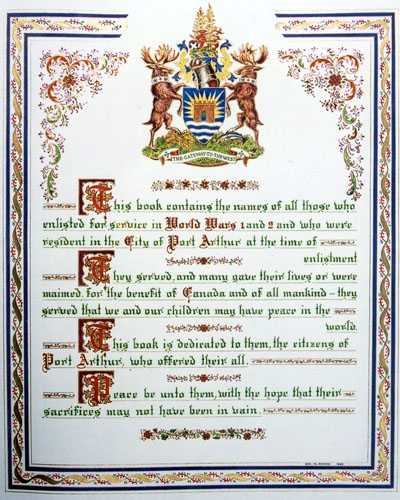 THE GATEWAY TO THE WEST
This book contains the names of all those who
enlisted for service in World Wars 1 and 2 and who were
resident in the City of Port Arthur at the time of
enlistment
They served, and many gave their lives or were
maimed, for the benefit of Canada and of all mankind - they
served that we and our children may have peace in the
world.
This book is dedicated to them, the citizens of
Port Arthur, who offered their all.
Peace be unto them, with the hope that their
sacrifices may not have been in vain.